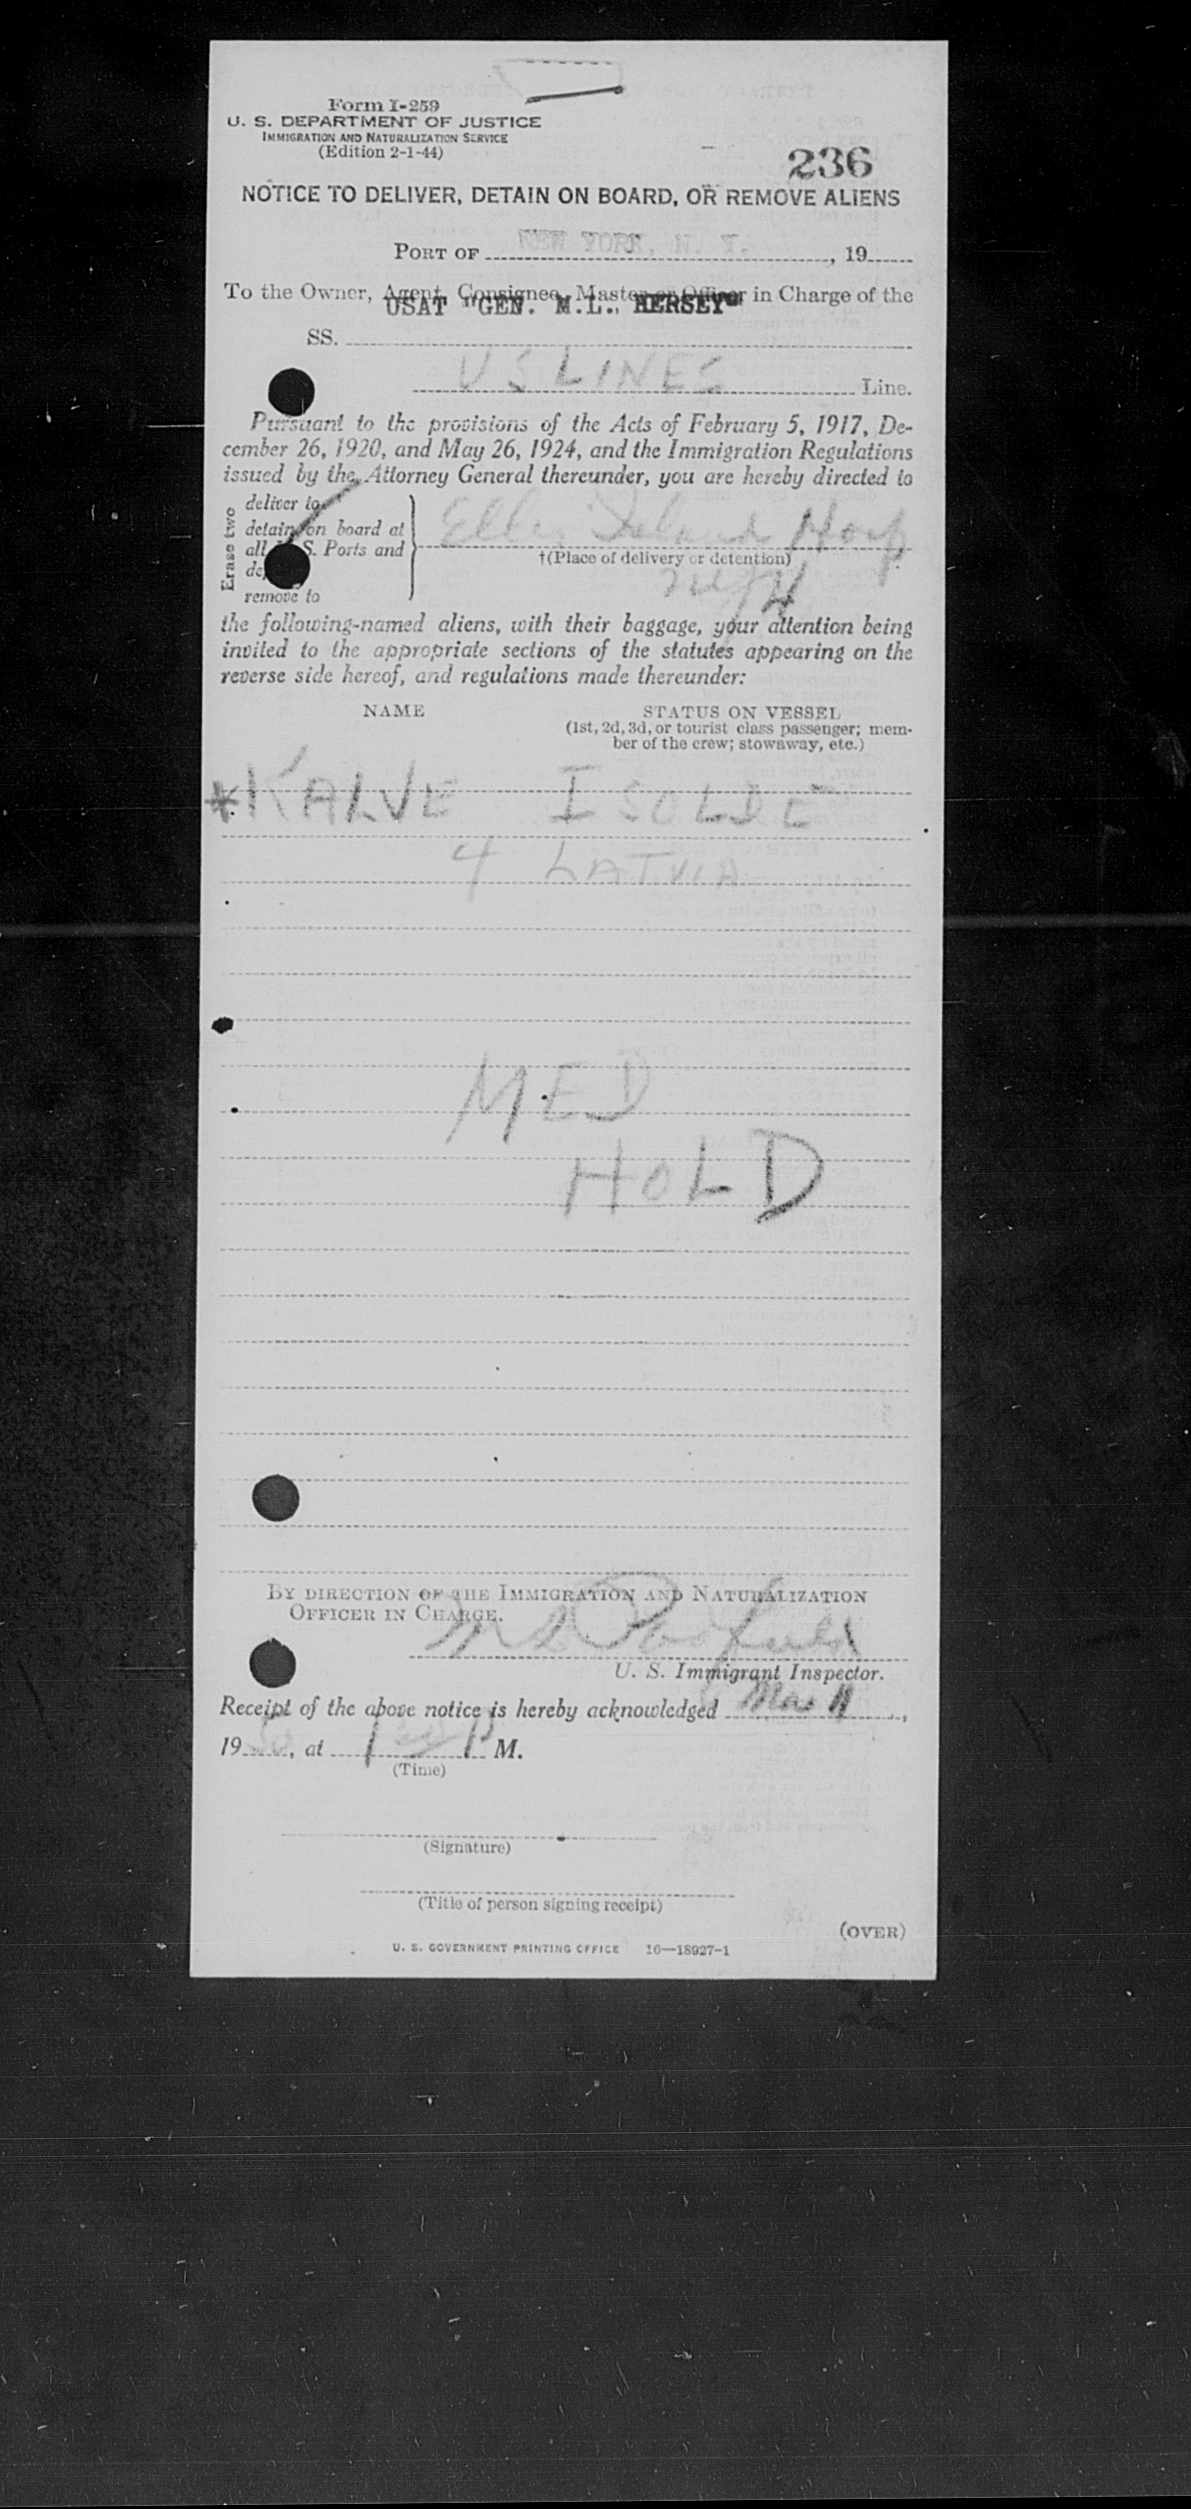 Form I-259
U. S. DEPARTMENT OF JUSTICE
IMMIGRATION AND NATURALIZATION SERVICE
(Edition 2-1-44)
236
NOTICE TO DELIVER, DETAIN ON BOARD, OR REMOVE ALIENS
PORT OF NEW YORK, N. Y., 19
To the Owner, Agent, Consignee, Master or Officer in Charge of the
USAT "GEN. M.L. HERSEY"
SS.
US LINES Line.
Pursuant to the provisions of the Acts of February 5, 1917, De-
cember 26, 1920, and May 26, 1924, and the Immigration Regulations
issued by the Attorney General thereunder, you are hereby directed to
Erase two
deliver to
detain on board at
all S. Ports and
remove to
Ellis Island Hosp
†(Place of delivery or detention)
the following-named aliens, with their baggage, your attention being
invited to the appropriate sections of the statutes appearing on the
reverse side hereof, and regulations made thereunder:
NAME STATUS ON VESSEL
(1st, 2d, 3d, or tourist class passenger; mem-
ber of the crew; stowaway, etc.)
*KALVE ISOLDE
4 LATVIA
MED
HOLD
BY DIRECTION OF THE IMMIGRATION AND NATURALIZATION
OFFICER IN CHARGE.
U. S. Immigrant Inspector.
Receipt of the above notice is hereby acknowledged Mar 11,
19, at 1 P M.
(Time)
(Signature)
(Title of person signing receipt)
(OVER)
U. S. GOVERNMENT PRINTING OFFICE 16—18927-1